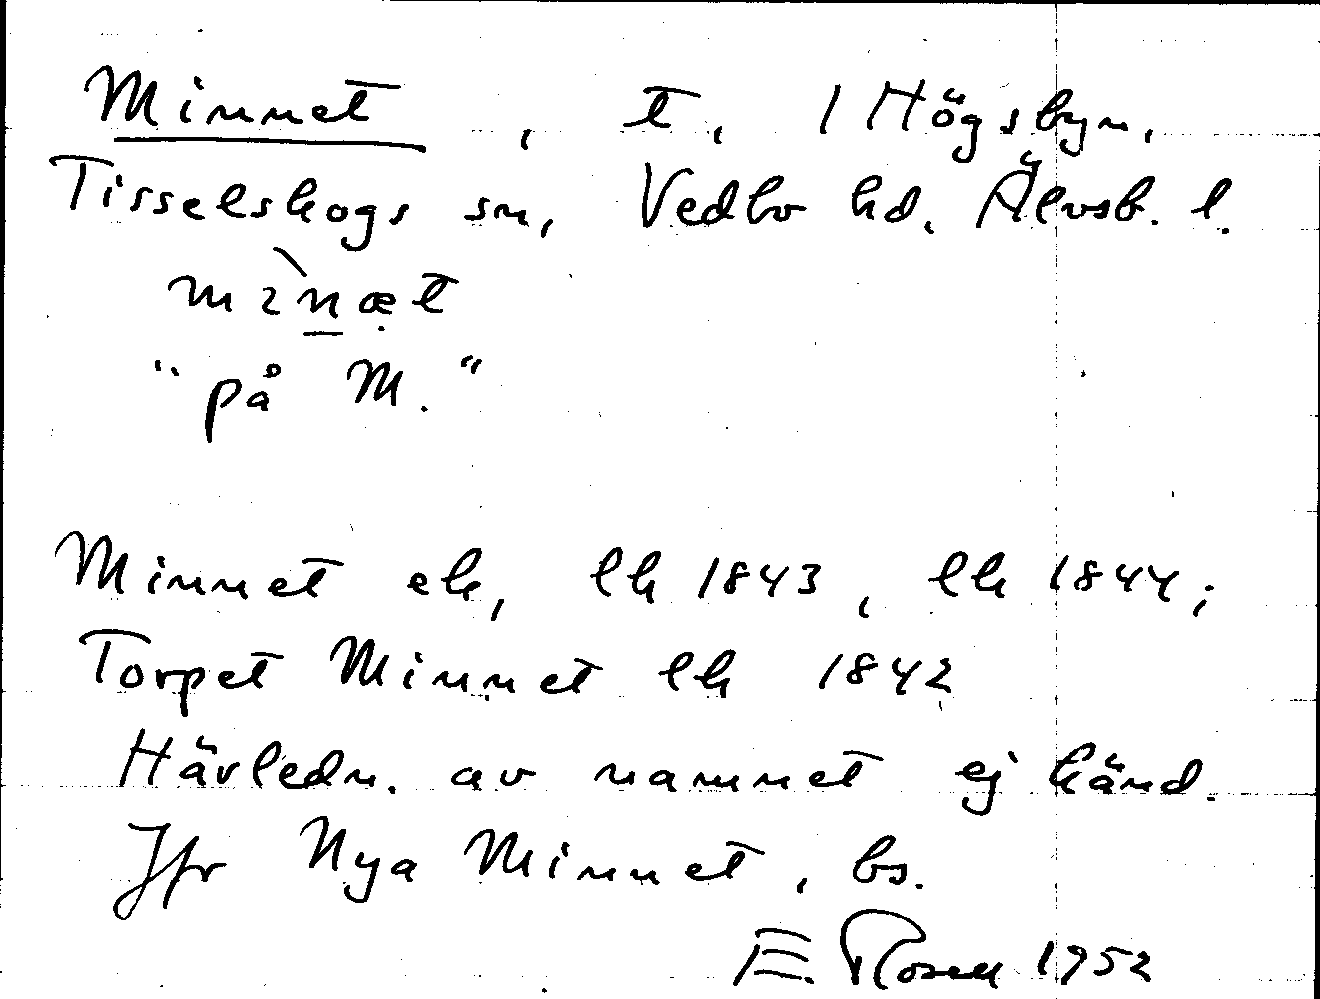 Minnet, t, 1 Högsbyn,
Tisselskogs sn, Vedbo hd. Älvsb. l.
mìnæt
"på M."
Minnet ek, lk 1843, lk 1844;
Torpet Minnet lk 1842
Härledn. av namnet ej känd.
Jfr Nya Minnet, bs.
E. Rosen 1952